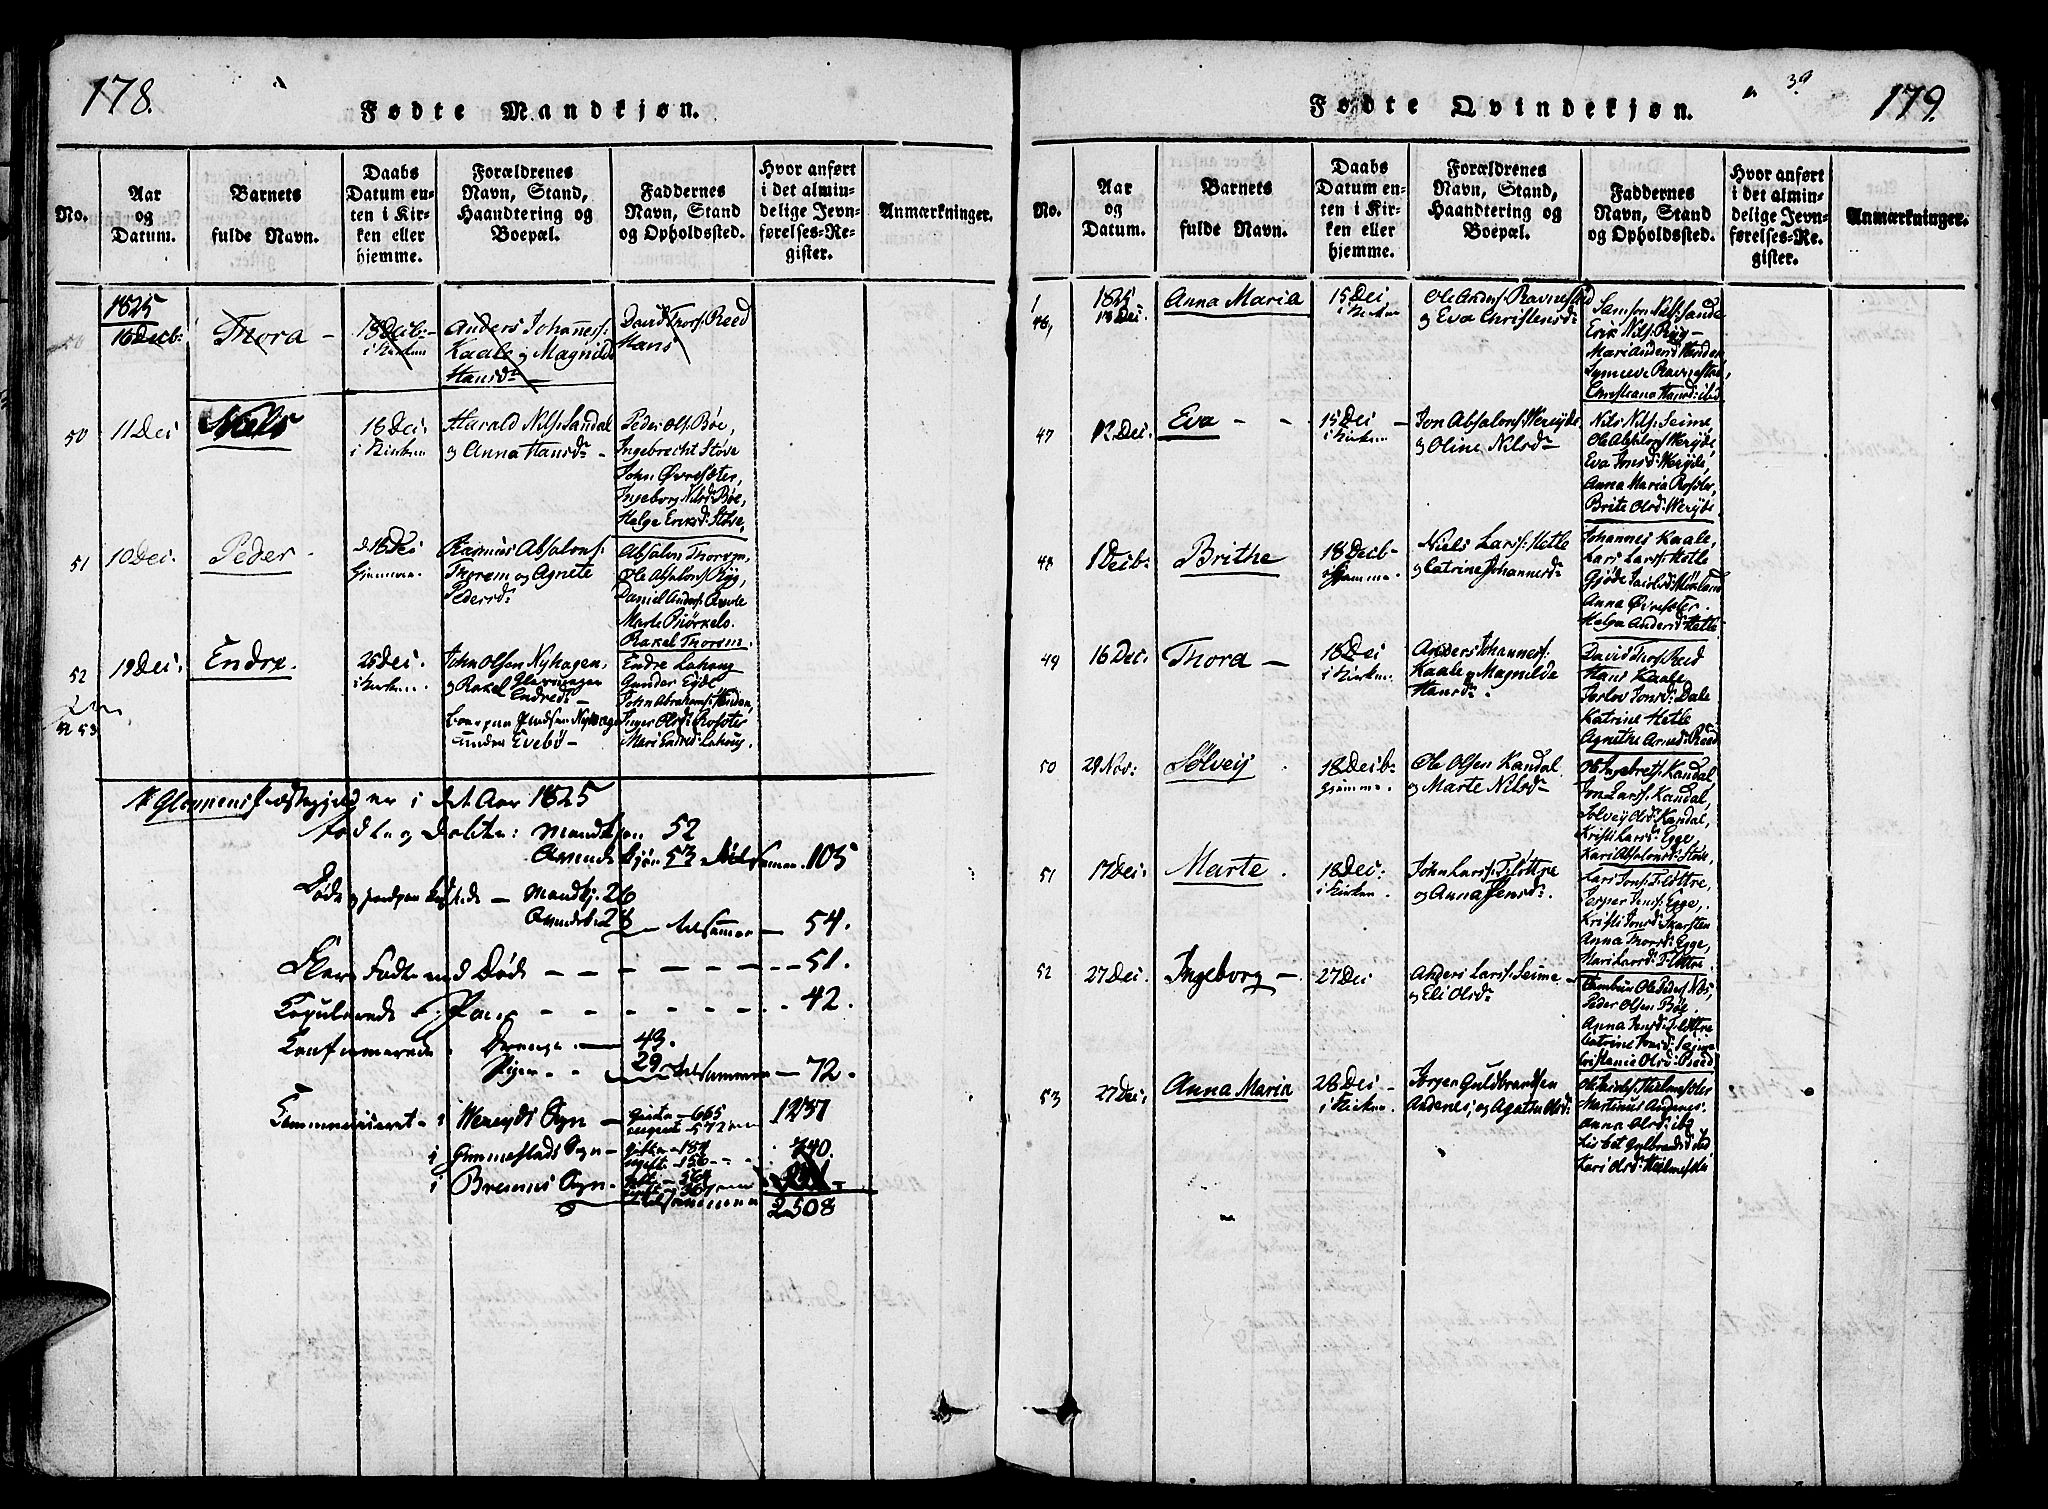 178.
Fødte Mandkjøn.
No.
Aar og Datum.
Barnets fulde Navn.
Daabs Datum enten i Kirken eller hjemme.
Forældrenes Navn, Stand, Haandtering og Boepæl.
Faddernes Navn, Stand og Opholdssted.
Hvor anført i det almindelige Jevnførelses-Register.
Anmærkninger.
1825
16 Decb: Thora — 18 Decb: i Kirken
Anders Johannes:
Kaale og Magnilde
Hansdr
David Thors: Reed
Hans
50 11 Dec Niels 18 Dec: i Kirken
Harald Nils: Sandal
og Anna Hansdr —
Peder Ols: Bøe,
Ingebrecht Støve
John Øvresæter,
Ingeborg Nilsd: Bøe,
Helge Eriksd: Støve,
51 10 Dec: Peder 18 Dec Hjemme.
Rasmus Absalons:
Thorem og Agnete
Pedersdr
Absalon Thorem
Ole Absalons: Ryg,
Daniel Anders:
Marte Biørkels.
Rakel Thorem.
52 19 Dec: Endre 25 Dec: i Kirken.
John Olsen Nyhagen,
og Rakel
Endresd: —
under Evebø —
Endre
Gunder Eyde
John Abrahams:
Inger Olsd:
Mari Endred:
53
Præstegjeld er i det Aar 1825
Fødte og Døbte: Mandkjøn 52
Qvindekjøn 53 tilsammen 105
Døde — Mandkj: 26
Qvindek: 28
tilsammen — 54.
Flere Fødte end Døde — 51.
Copulerede Par — 42.
Confirmerede Drenge — 43.
Piger — 29 tilsammen — 72.
Communiceret — i Sogn — 665 — 572 1237
i Gimmestads Sogn — 184 — 156 340.
i Bremens Sogn
tilsammen 2508
179.
39
Fødte Qvindekjøn.
No.
Aar og Datum.
Barnets fulde Navn.
Daabs Datum enten i Kirken eller hjemme.
Forældrenes Navn, Stand, Haandtering og Boepæl.
Faddernes Navn, Stand og Opholdssted.
Hvor anført i det almindelige Jevnførelses-Register.
Anmærkninger.
1825
46, 13 Dec. Anna Maria 15 Dec, i Kirken
Ole Anders: Ravnestad
og Eva Christensdr
Samson Nils: Sande
Erik Nils: Ryg —
Mari Andersd:
Synneve Ravnestad,
Christiana Hansd: ibid
47 12 Dec: Eva — — 15 Dec i Kirken
Jon Absalons: Werejde
og Oline Nilsdr
Nils Nils: Seime,
Ole Absalons: Werejde,
Eva Jonsd: Werejde,
Anna Maria
Brite Olsd: Werejde
48 1 Decb: Brithe 18 Decb Hjemme.
Niels Larss: Hetle
og Catrine Johannesdr
Johannes Kaale,
Lars Larss: Hetle
Gjøde
Anna Øvresæter.
Helga Andersd: Hetle
49 16 Dec. Thora — 18 Dec i Kirken.
Anders Johanness:
Kaale og Magnilde
Hansdr.
David Thors: Reed
Hans Kaale,
Jonsd: Dale
Katrine Hetle
Agnethe Arnesd: Reed
50 29 Nov: Sølvej 18 Decb: Hjemme.
Ole Olsen Kandal
og Marte Nilsdr
Ole Ingebrets: Kandal,
Jon Larss: Kandal,
Sølvej Olsd: Kandal,
Kristi Larsd: Egge,
Kari Absalonsd: Støve,
51 17 Dec: Marte 18 Dec: i Kirken.
John Larss: Fløttre
og Anna Jensdr.
Lars Jons: Fløttre,
Jesper Jens: Egge,
Kristi Jonsd: Skarsten
Anna Thorsd: Egge,
Mari Larsd: Fløttre.
52 27 Dec. Ingeborg — 27 Dec
Anders Larss: Seime
og Eli Olsdr
Tambur Ole Peders: Næs,
Peder Olsen Bøe.
Anna Jensd: Fløttre
Catrine Jonsd: Seime
Cristianie Olsd: Reed
53 27 Dec: Anna Maria 28 Dec i Kirken.
Jørgen Guldbrandsen
Andenes, og Agatha Olsd:
Martinus Andenes.
Anna Olsd: ibd
Lisbet Gulbrandsd: ibd
Kari Olsd: